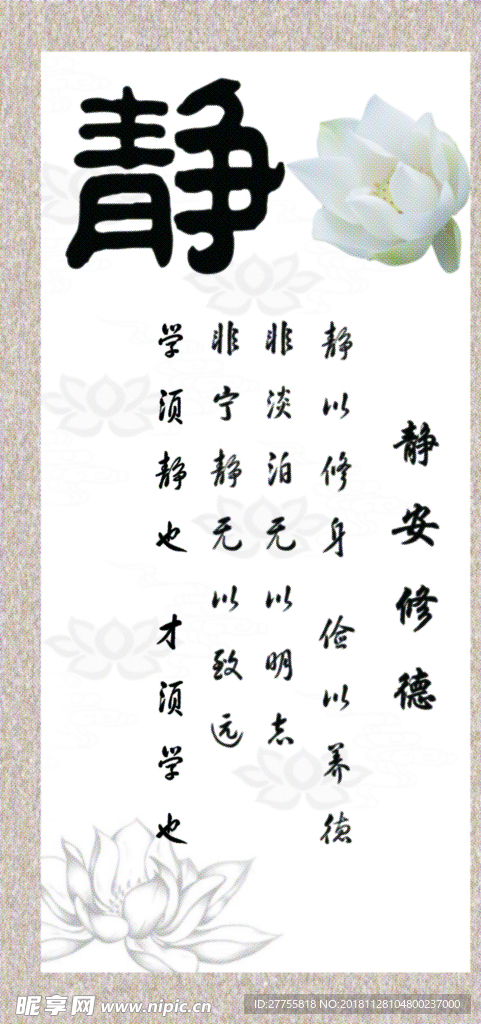 静
静安修德
静以修身 俭以养德
非淡泊无以明志
非宁静无以致远
学须静也 才须学也
昵享网 www.nipic.cn
ID:27755818 NO:20181128104800237000